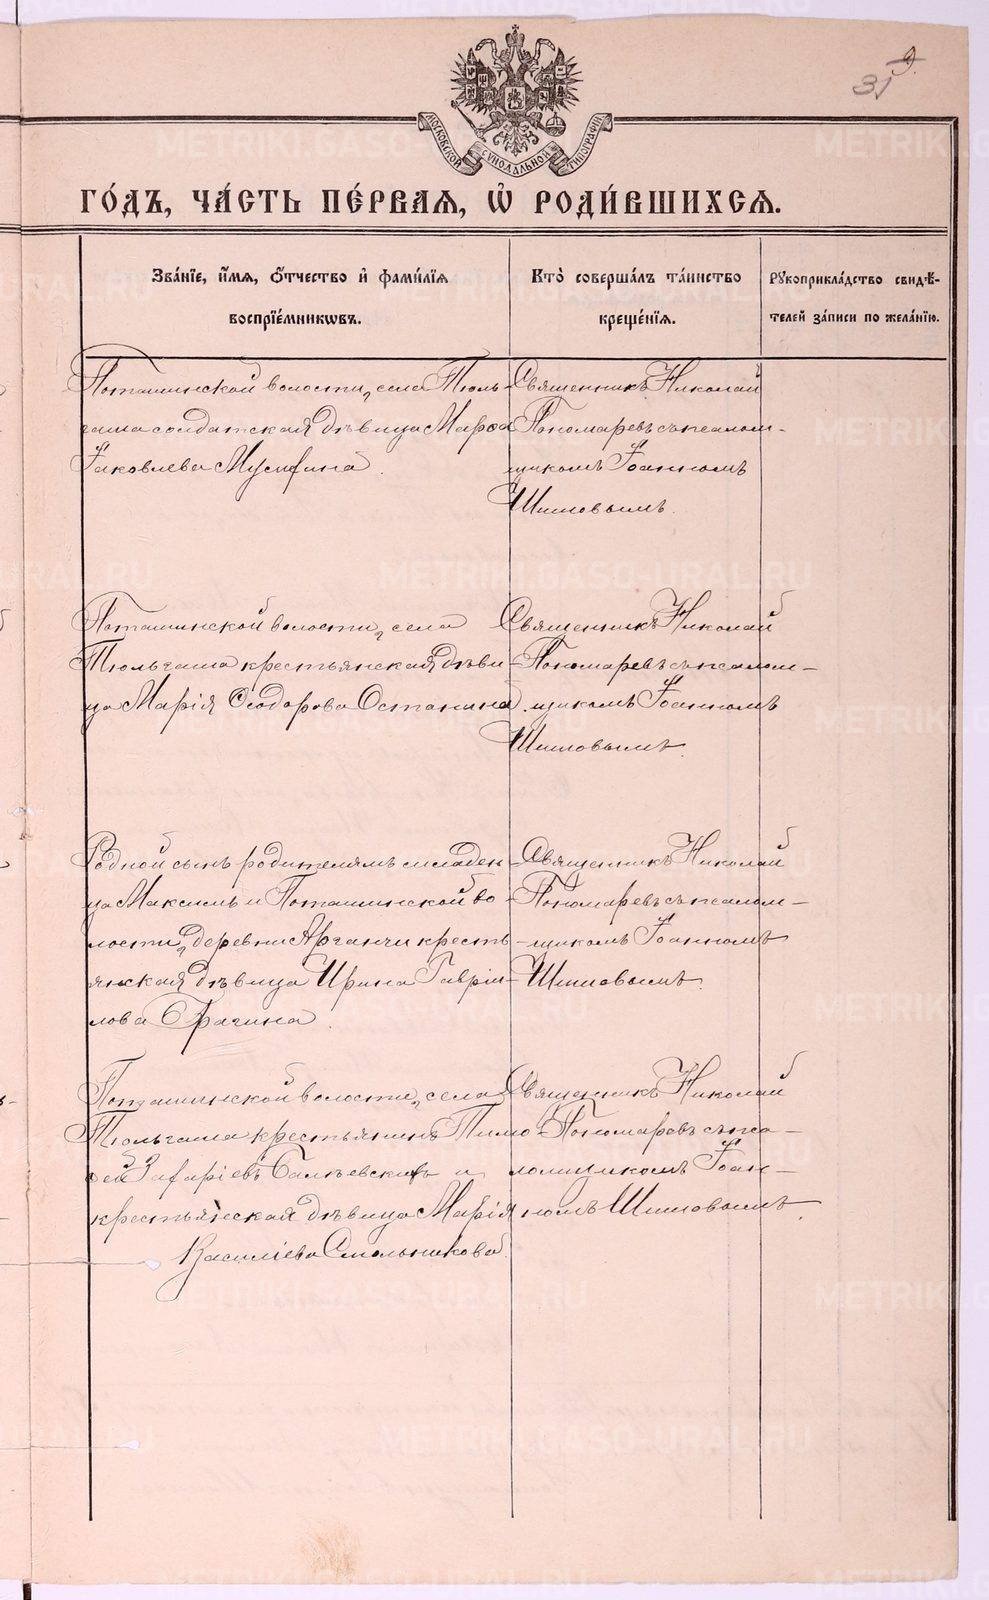 31
9.
МОСКОВСКОЙ СѴНОДАЛЬНОЙ ТИПОГРАФІИ
ГО́ДЪ, ЧА́СТЬ ПЕ́РВАЯ, Ѽ РОДИ́ВШИХСЯ.
Зва́нїе, и҆́мя, ѻ҆́тчество и҆ фами́лїя
воспрїе́мникѡвъ.
Кто̀ соверша́лъ та́инство
креще́нїя.
Рꙋкоприкла́дство свидѣ́-
телей за́писи по жела́нїю.
Поташинской волости, села Тюль-
гаша солдатская дѣвица Марѳа
Іаковлева
Священникъ Николай
Пономаревъ съ псалом-
щикомъ Іоанномъ
Шишовымъ.
Поташинской волости, села
Тюльгаша крестьянская дѣви-
ца Марія Ѳеодорова Останина.
Священникъ Николай
Пономаревъ съ псалом-
щикомъ Іоанномъ
Шишовымъ.
Родной сынъ родителямъ младен-
ца Максимъ и Поташинской во-
лости, деревни Арганчи кресть-
янская дѣвица Ирина Гаврiи-
лова
Священникъ Николай
Пономаревъ съ псалом-
щикомъ Іоанномъ
Шишовымъ.
Поташинской волости, села
Тюльгаша крестьянинъ Тимо-
ѳей Захаріевъ и
крестьянская дѣвица Марія
Василіева Смольникова.
Священникъ Николай
Пономаревъ съ пса-
ломщикомъ Іоан-
номъ Шишовымъ.
METRIKI.GASO-URAL.RU